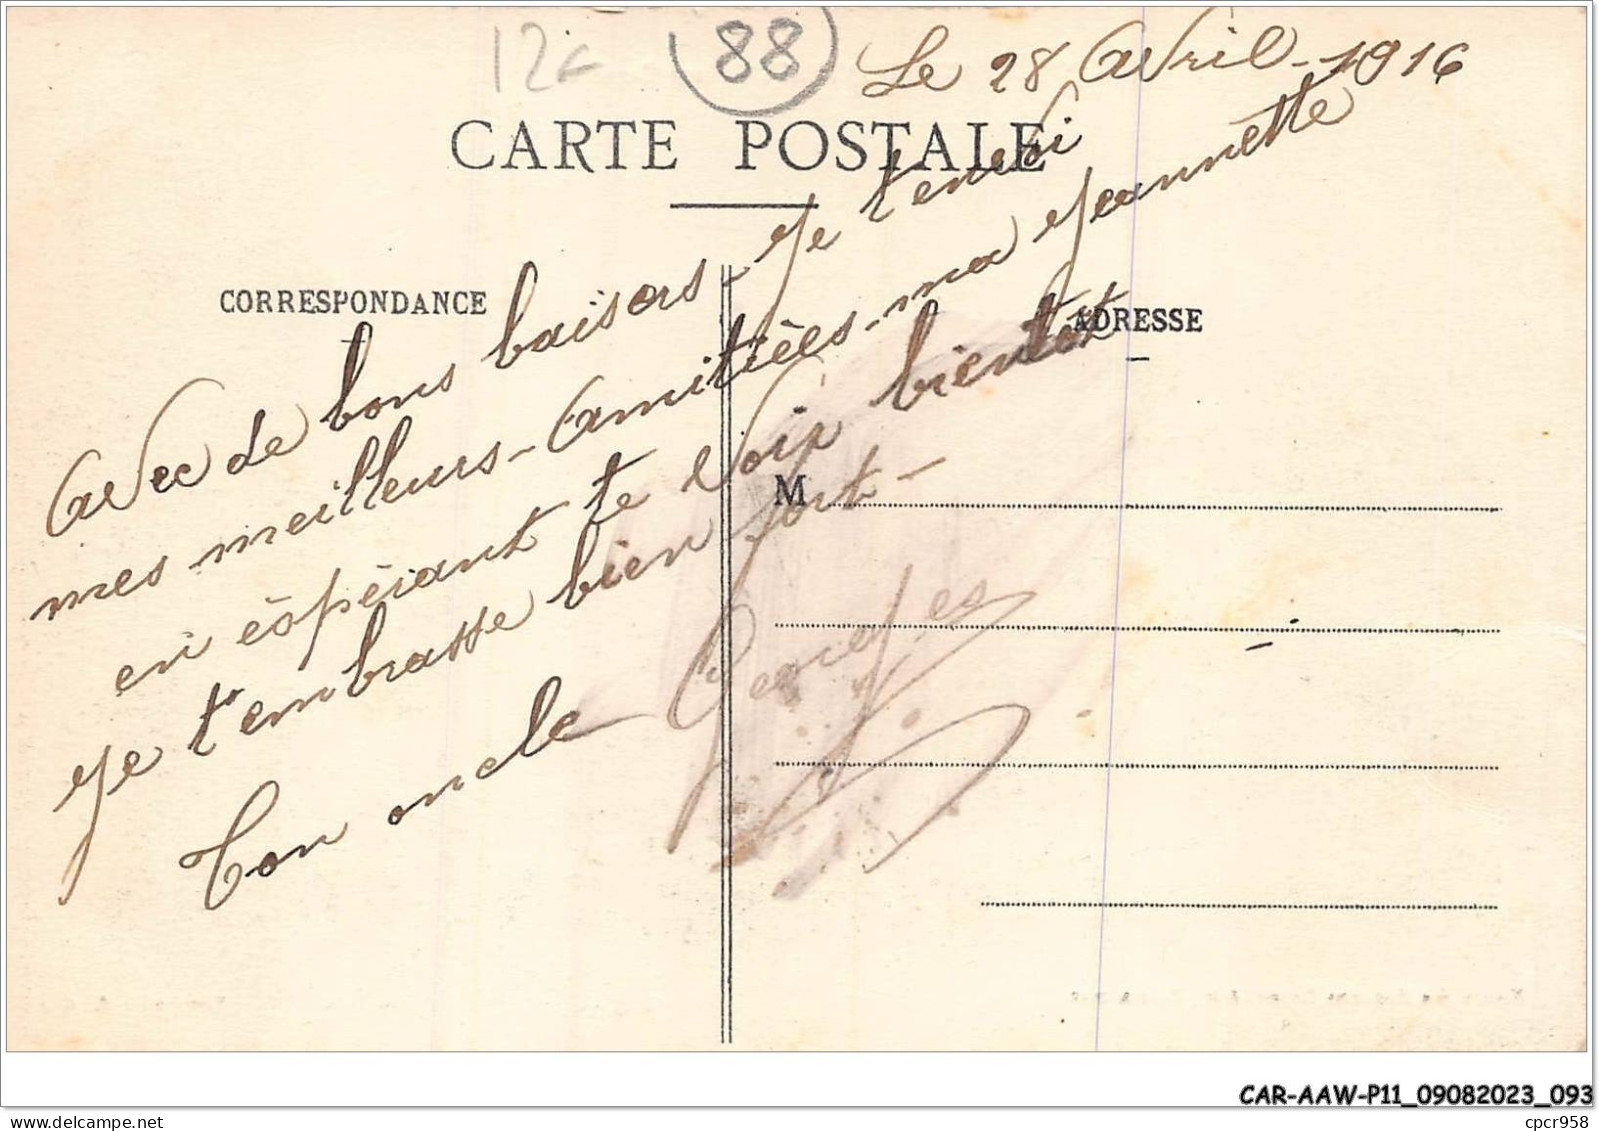 12€
88
Le 28 Avril - 1916
CARTE POSTALE
CORRESPONDANCE
ADRESSE
Avec de bons baisers - Je t'envoi
mes meilleurs - Amitiées - ma Jeannette
en éspérant te voir bientot
Je t'embrasse bien fort -
Ton oncle Georges
M
CAR-AAW-P11_09082023_093
delcampe.net
cpcr958